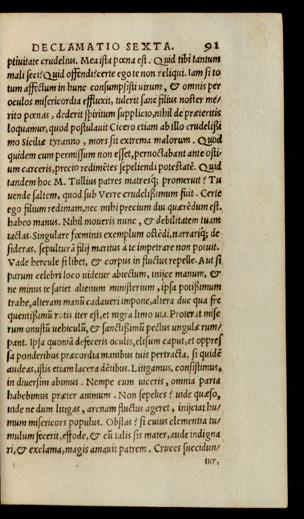 DECLAMATIO SEXTA. 91
ptiuitate crudelius. Mea ista pœna est. Quid tibi tantum
mali feci? Quid offendi? certe ego te non reliqui. Iam si to
tum affectum in hunc consumpsisti uirum, & omnis per
oculos misericordia effluxit, tulerit sane filius noster me/
rito pœnas, dederit spiritum supplicio, nihil de præteritis
loquamur, quod postulauit Cicero etiam ab illo crudelissi
mo Siciliæ tyranno, mors sit extrema malorum. Quod
quidem cum permissum non esset, pernoctabant ante osti/
um carceris, precio redimẽtes sepeliendi potestatẽ. Quid
tandem hoc M. Tullius patres matresq; promeruit? Tu
uende saltem, quod sub Verre crudelissimum fuit. Certe
ego filium redimam, nec mihi precium diu quærẽdum est.
habeo manus. Nihil moueris nunc, & debilitatem tuam
iactas. Singulare fœminis exemplum ostẽdi, narrariq; de
sideras, sepulturã filij maritus à te impetrare non potuit.
Vade hercule si libet, & corpus in fluctus repelle. Aut si
parum celebri loco uidetur abiectum, inijce manum, &
ne minus te satiet alienum ministerium, ipsa potissimum
trahe, alteram manũ cadaueri impone, altera duc qua fre
quentissimũ rotis iter est, et nigra limo uia. Proterat mise
rum onustũ uehiculũ, & sanctissimũ pectus ungulæ rum/
pant. Ipsa quonã defeceris oculis, elisum caput, et oppres
sa ponderibus præcordia manibus tuis pertracta, si quidẽ
audeas, istis etiam lacera dẽtibus. Litigamus, consistimus,
in diuersim abimus. Nempe cum uiceris, omnia paria
habebimus præter animum. Non sepelies? uide quæso,
uide ne dum litigas, arenam fluctus ageret, inijciat hu/
mum misericors populus. Obstas? si cuius elementia tu/
mulum fecerit, effode, & cũ talis sis mater, aude indigna
ri, & exclama, magis amauit patrem. Cruces succidun/
tur,